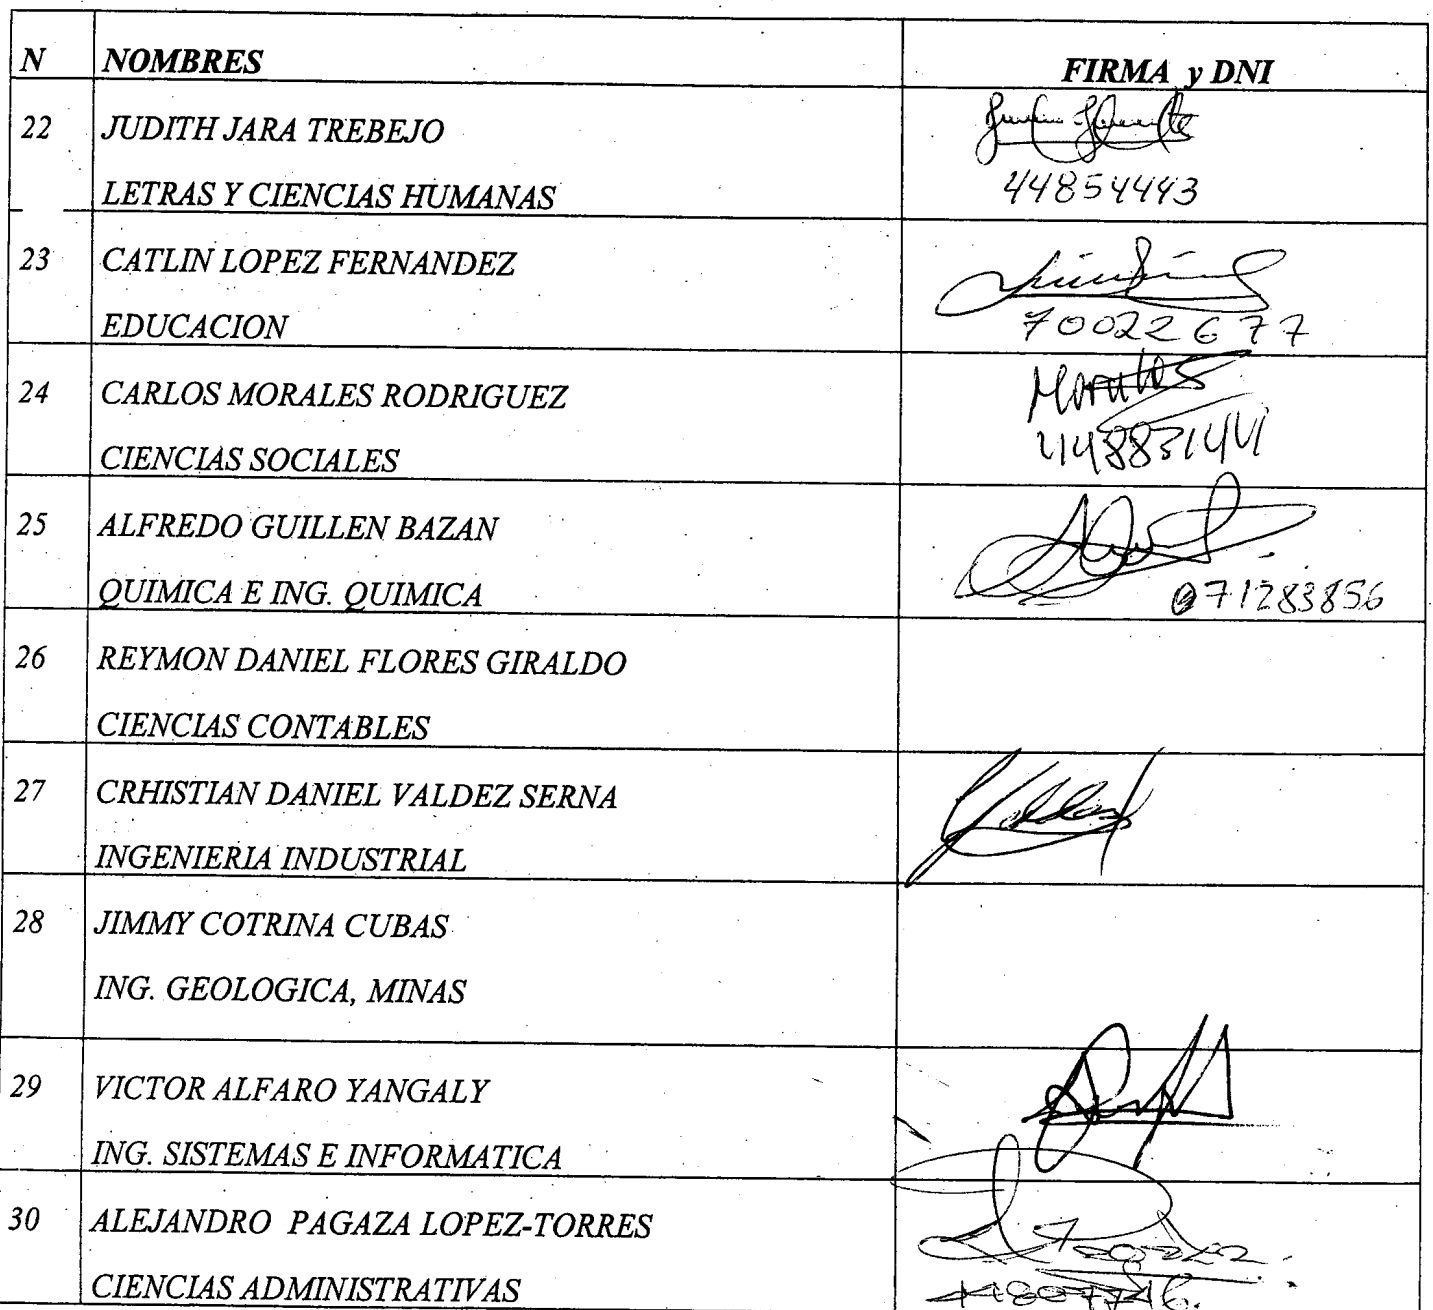 N NOMBRES FIRMA y DNI
22 JUDITH JARA TREBEJO
LETRAS Y CIENCIAS HUMANAS 44854443
23 CATLIN LOPEZ FERNANDEZ
EDUCACION 70022677
24 CARLOS MORALES RODRIGUEZ Morales
CIENCIAS SOCIALES 44883144
25 ALFREDO GUILLEN BAZAN
QUIMICA E ING. QUIMICA 071283856
26 REYMON DANIEL FLORES GIRALDO
CIENCIAS CONTABLES
27 CRHISTIAN DANIEL VALDEZ SERNA
INGENIERIA INDUSTRIAL
28 JIMMY COTRINA CUBAS
ING. GEOLOGICA, MINAS
29 VICTOR ALFARO YANGALY
ING. SISTEMAS E INFORMATICA
30 ALEJANDRO PAGAZA LOPEZ-TORRES
CIENCIAS ADMINISTRATIVAS